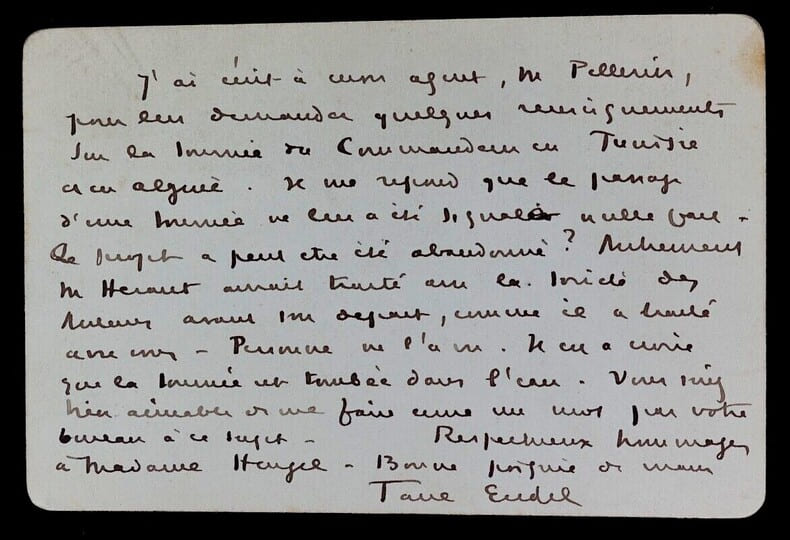 J'ai écrit à mon agent, M Pellerin,
pour leur demander quelques renseignements
sur la tournée du Commandeur en Tunisie
et en algérie. Il me répond que le passage
d'une tournée ne leur a été signalée nulle part -
le projet a peut etre été abandonné? Autrement
M Herault aurait traité avec la Société des
Auteurs avant son départ, comme il a traité
avec vous - Personne ne l'a vu. Il en a
que la tournée est tombée dans l'eau. Vous seriez
bien aimable de me faire un mot par votre
bureau à ce sujet - Respectueux hommages
à Madame Heugel - Bonne poignée de main
Paul